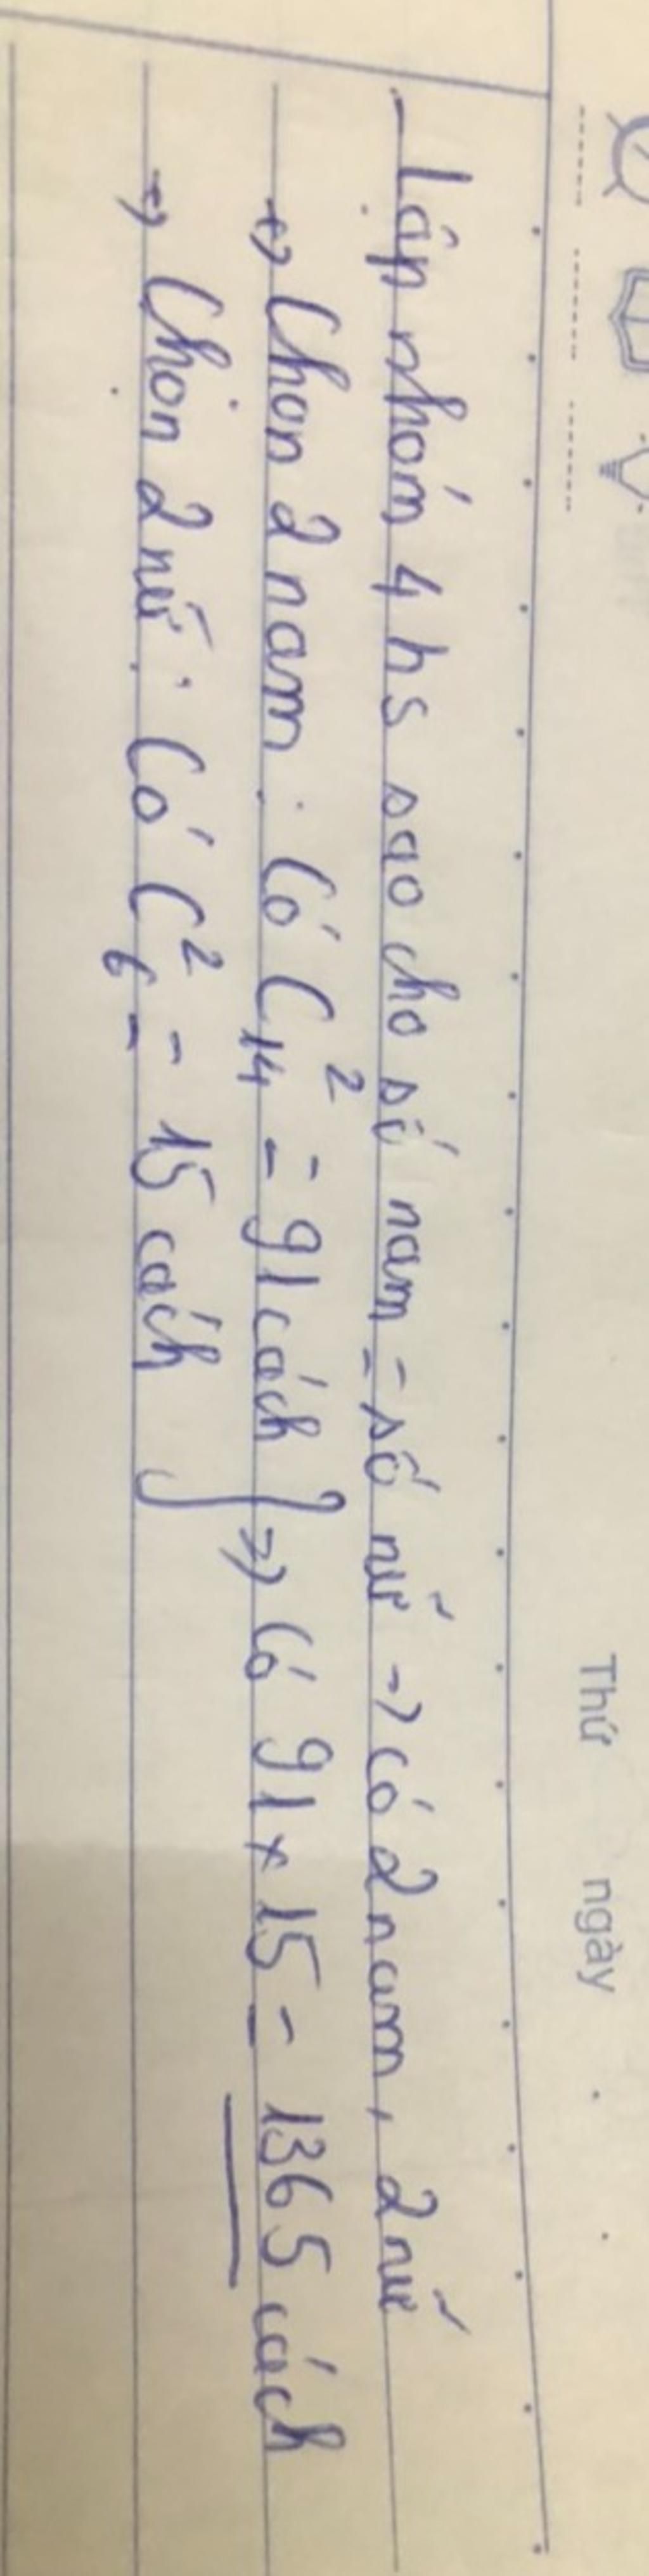 Thứ ngày
- Lập nhóm 4 hs sao cho số nam = số nữ → có 2 nam, 2 nữ
+) Chọn 2 nam : Có C₁₄² = 91 cách } => Có 91 x 15 = 1365 cách
+) Chọn 2 nữ : Có C₆² = 15 cách